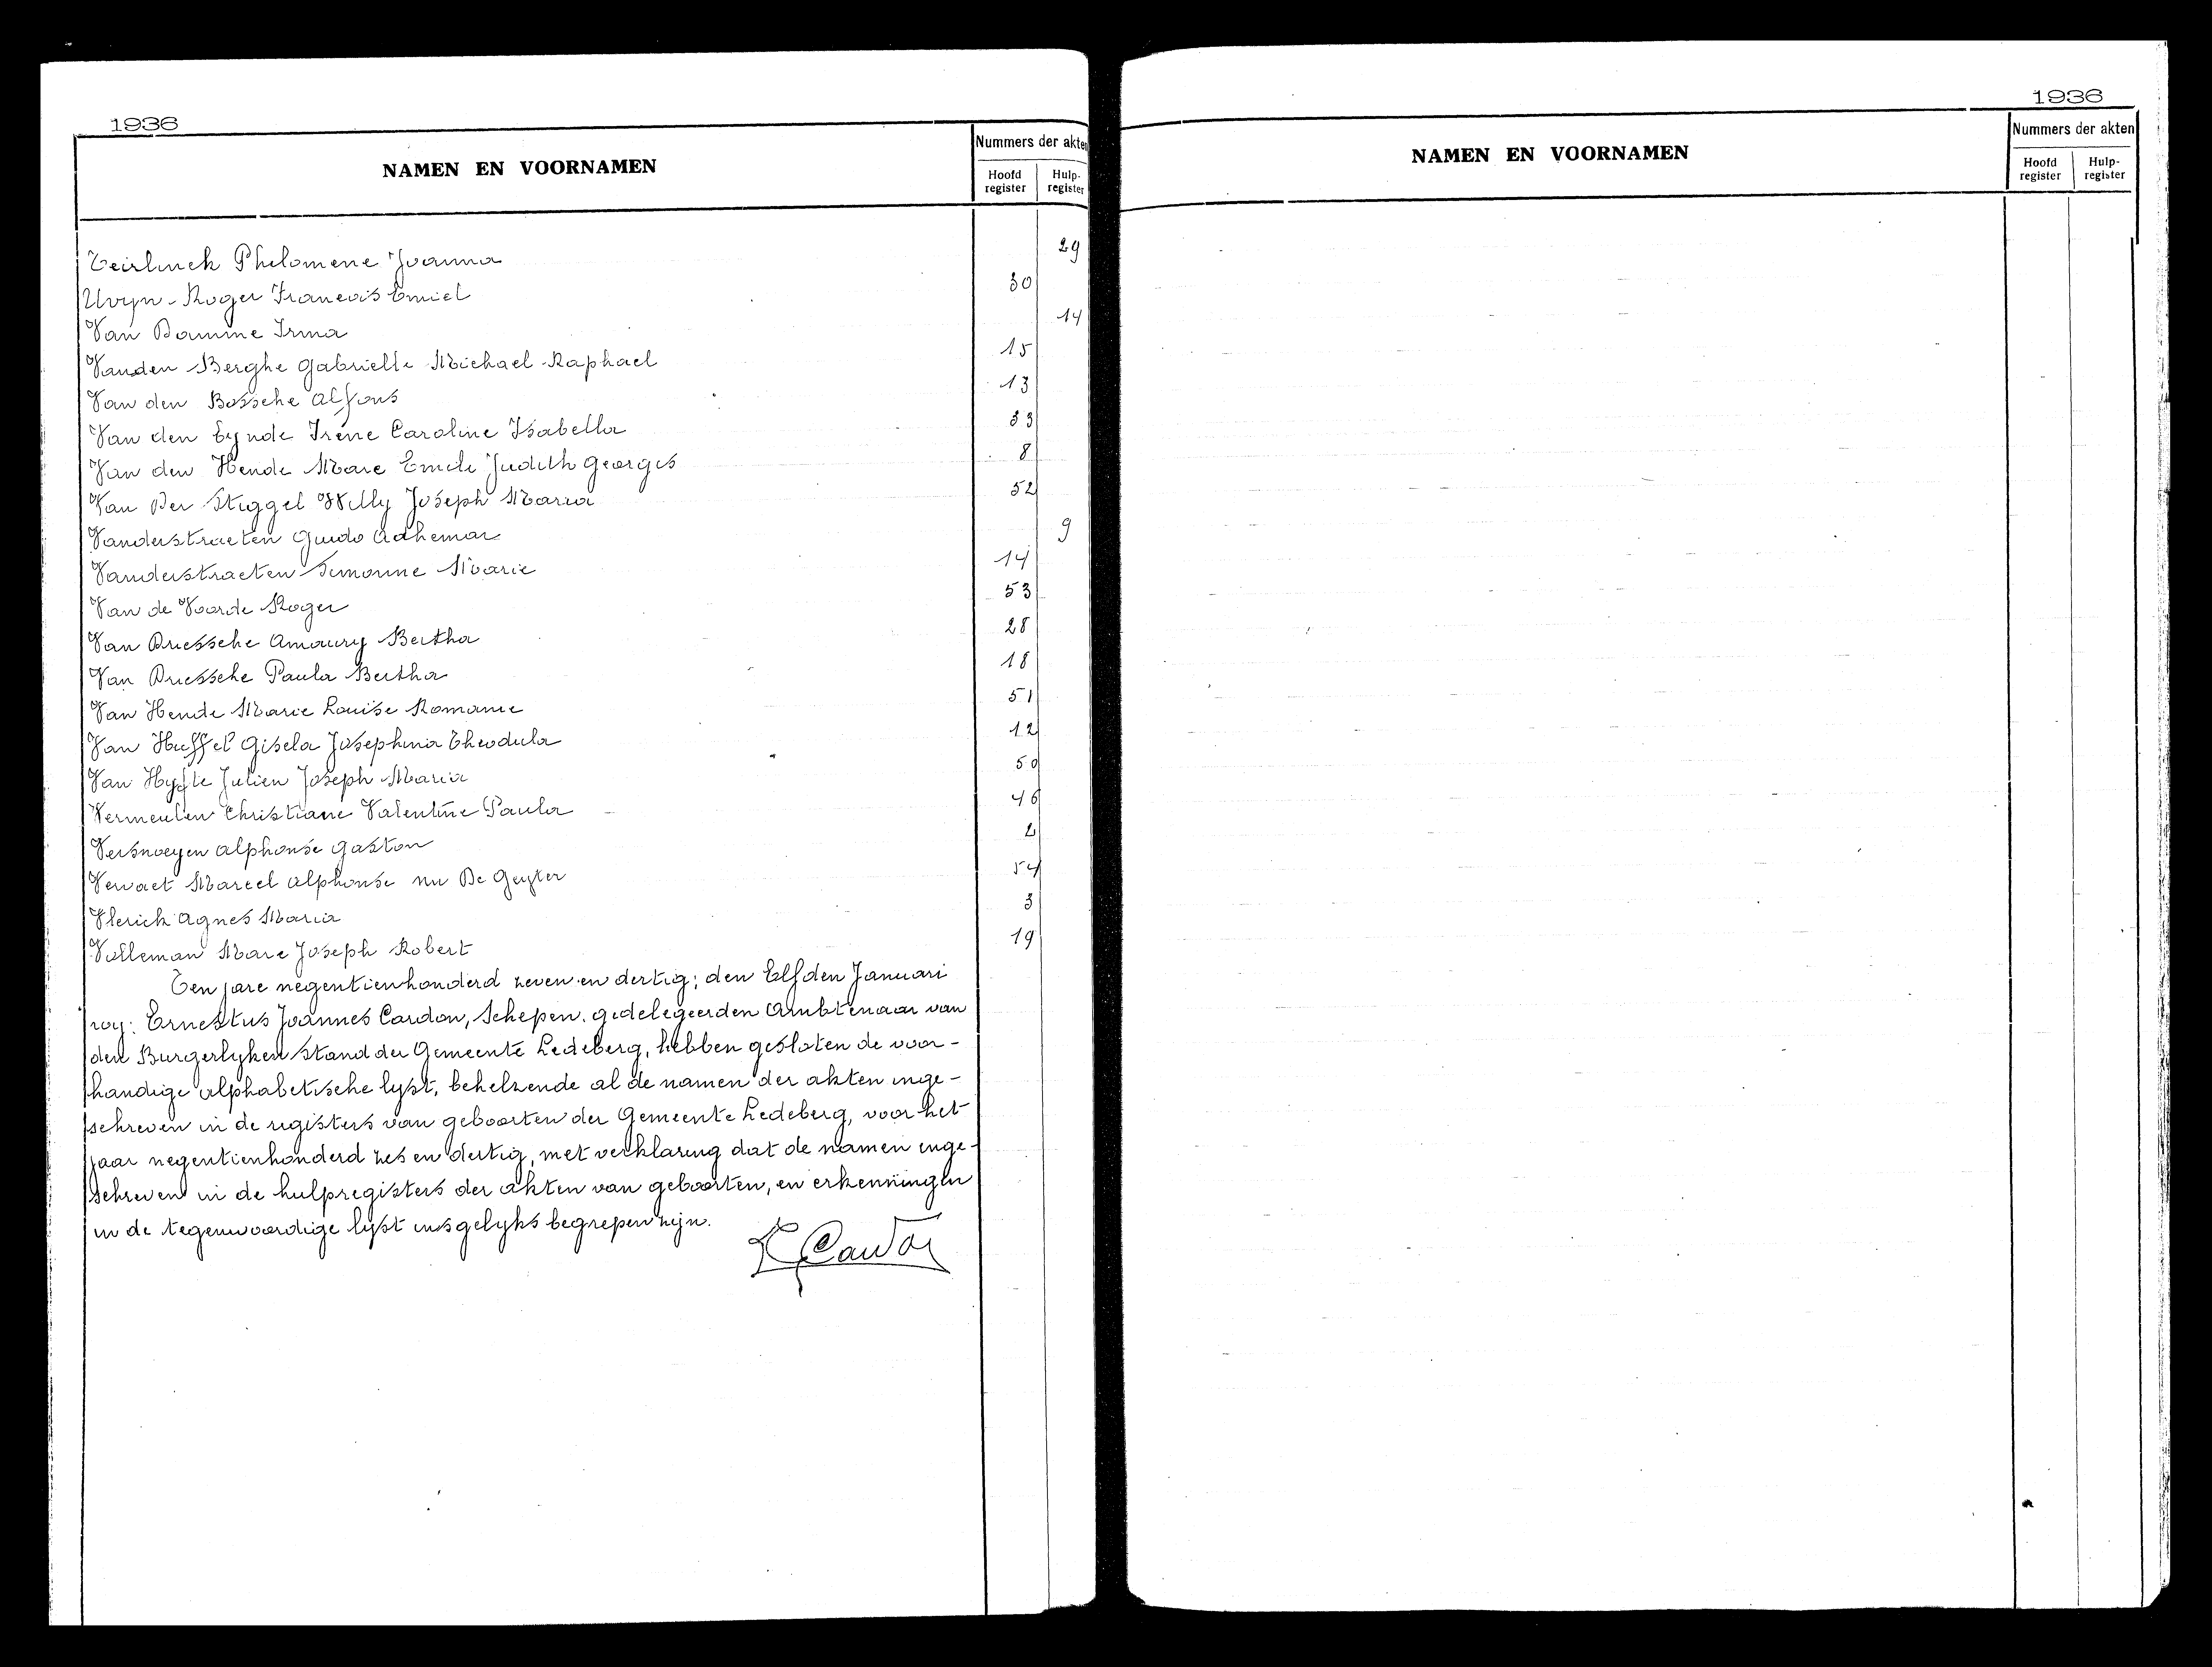 1936
NAMEN EN VOORNAMEN
Nummers der akten
Hoofd register
Hulp-register
Teirlinck Philomene Joanna 29
Uvyn Roger Francois Emiel 30
Van Damme Irma 14
Vanden Berghe Gabrielle Michael Raphael 15
Van den Bossche Alfons 13
Van den Eynde Irène Caroline Isabella 33
Van den Hende Marc Emile Judith Georges 8
Van Der Stiggel Willy Joseph Maria 52
Vanderstraeten Guido Adhemar 9
Vanderstraeten Simonne Marie 14
Van de Voorde Roger 53
Van Driessche Amaury Bertha 28
Van Driessche Paula Bertha 18
Van Hende Marie Louise Romanie 51
Van Huffel Gisela Josephina Theodula 12
Van Hyfte Julien Joseph Maria 50
Vermeulen Christiane Valentine Paula 46
Versnoeyen Alphonse Gaston 2
Vervaet Marcel Alphonse nu De Geyter 54
Vlerick Agnes Maria 3
Volleman Marc Joseph Robert 19
Ten jare negentienhonderd zeven en dertig; den Elfden Januari
wy: Ernestus Joannes Cardon, Schepen. gedelegeerden Ambtenaar van
den Burgerlyken Stand der Gemeente Ledeberg, hebben gesloten de voor-
handige alphabetische lyst, behelzende al de namen der akten inge-
schreven in de registers van geboorten der Gemeente Ledeberg, voor het
jaar negentienhonderd zes en dertig, met verklaring dat de namen inge-
schreven in de hulpregisters der akten van geboorten, en erkenningen
in de tegenwoordige lyst insgelyks begrepen zijn.
E Cardon
1936
NAMEN EN VOORNAMEN
Nummers der akten
Hoofd register
Hulp-register